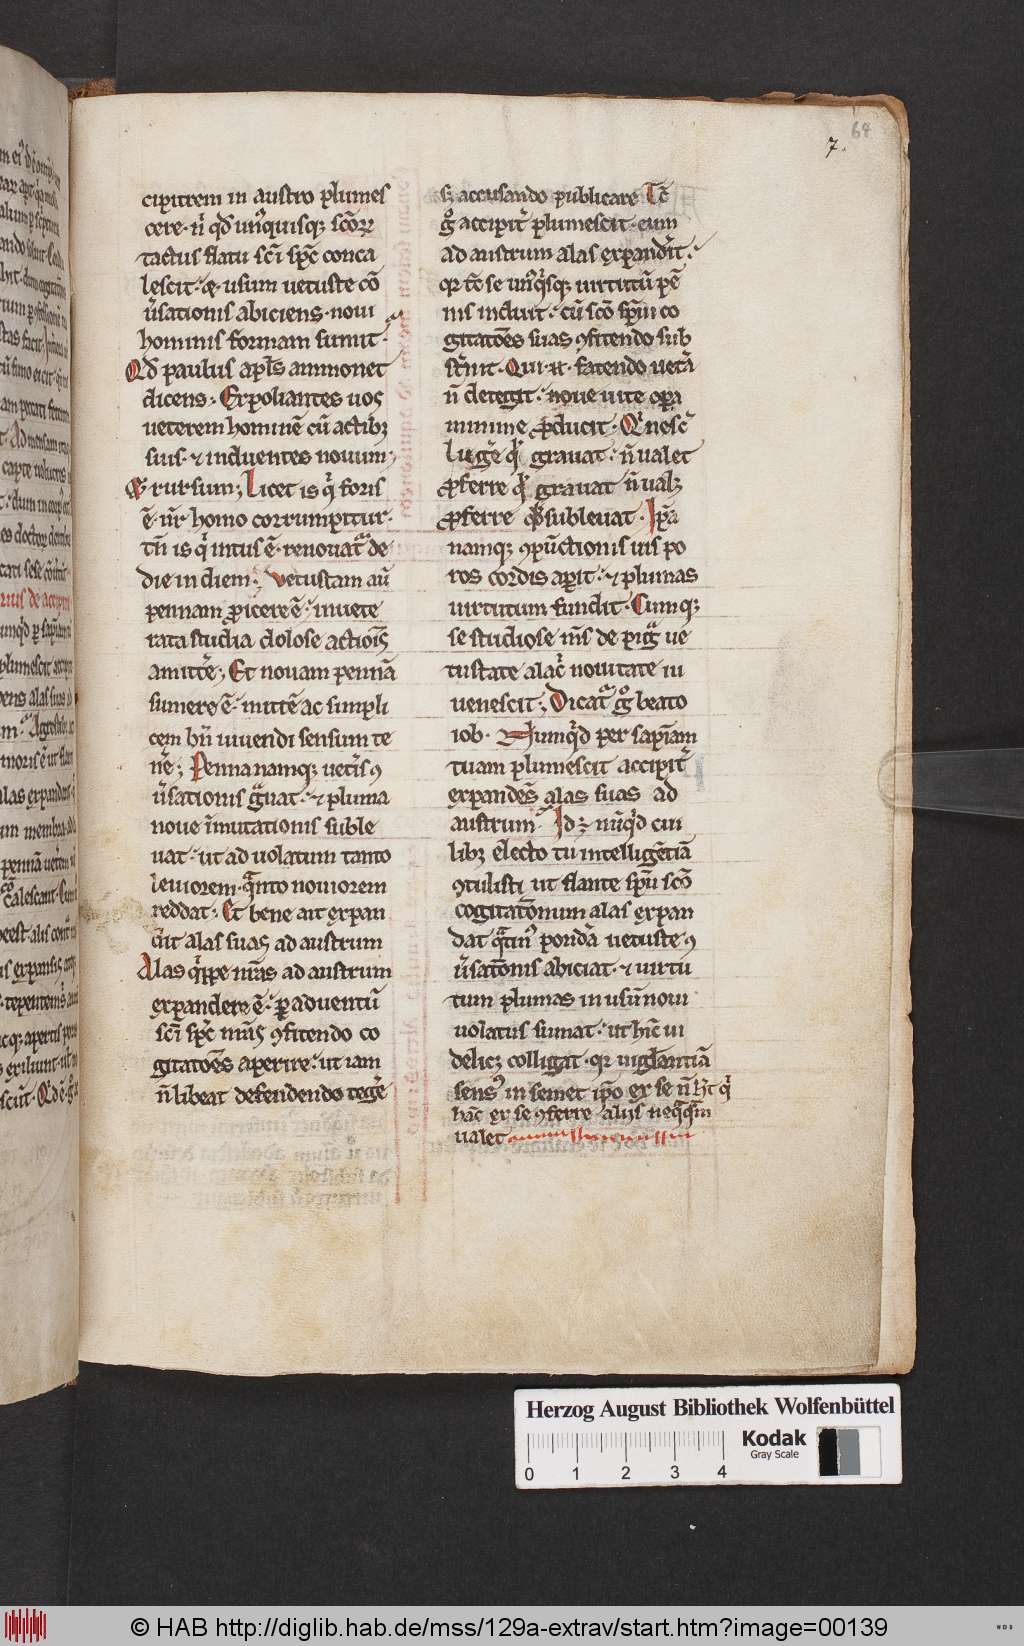 7.
64
cipitrem in austro plumes
cere· n̄ qđ unꝰquisqꝫ sc̄oꝝ
tactus flatu sc̄i sp̄c conca
lescit· ⁊ usum uetuste cō
ũsationis abiciens· noui
hominis formam sumit·
Qđ paulus apl̄s ammonet
dicens· Expoliantes uos
ueterem hominē cū actibꝫ
suis· ⁊ induentes nouum·
Et rursum; Licet is qͥ foris
ē· nr̄ homo corrumpitur·
tn̄ is qͥ intus ē· renouatᷣ de
die in diem; Vetustam aū
pennam ꝓicere ē· inuete
rata studia dolose actiōis
amittˀe; Et nouam pennā
sumere ē· mittē ac simpli
cem bn̄ uiuendi sensum te
nˀe; Penna namqꝫ uetˀis ꝯ
ũsationis gͣuat· ⁊ pluma
noue īmutationis suble
uat· ut ad uolatum tanto
leuiorem· qͣnto nouiorem
reddat· Et bene ait expan
dˀit alas suas ad austrum
Alas qͥppe nr̄as ad austrum
expandere ē· ꝑ aduentū
sc̄i sp̄c nr̄as ꝯfitendo co
gitatōes aperire· ut iam
n̄ libeat defendendo tegˀe
sꝫ accusando publicare Tc̄
gͦ accipitˀ plumescit· cum
ad austrum alas expandˀit·
qꝛ tc̄ se unꝰqͥsqꝫ uirtutū pē
nis induit· cū sc̄o sp̄ui co
gitatōes suas ꝯfitendo sub
stˀnit· Qui· n̄· fatendo uetˀa
n̄ detegit· noue uite opˀa
minime ꝓducit· Qͥ nesc̄
lugˀe qđ grauat· n̄ ualet
ꝓferre qđ subleuat· Ip̄a
namqꝫ ꝯpūctionis uis po
ros cordis aperit· ⁊ plumas
uirtutum fundit· Cumqꝫ
se studiose mˀs de pigͣ ue
tustate alacˀ nouitate iu
uenescit; Dicatᷣ gͦ beato
iob· Numqͥd per sapiām
tuam plumescit accipitˀ
expandēs alas suas ad
austrum· Idꝫ nūqͥd cui
libꝫ electo tu intelligētiā
ꝯtulisti ut flante sp̄u sc̄o
cogitatōnum alas expan
dat qͣtinꝰ pondˀa uetuste ꝯ
ũsatōnis abiciat· ⁊ uirtu
tum plumas in usū noui
uolatus sumat· ut hīc ui
delicꝫ colligat· qꝛ uigilantiā
sensꝰ in semet ip̄o ex se n̄ hꝫ qͥ
hāc ex se ꝯferre alijs neqͣqͣm
ualet
Herzog August Bibliothek Wolfenbüttel
Kodak
Gray Scale
0 1 2 3 4
© HAB http://diglib.hab.de/mss/129a-extrav/start.htm?image=00139